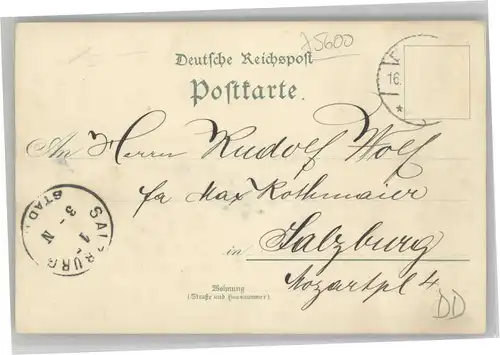 75600
Deutsche Reichspost
Postkarte.
16.
An Herrn Rudolf Wolf
fa Max Rothmaier
in Salzburg
Mozartpl 4
SALZBURG
STADT
1
3 - N
Wohnung
(Straße und Hausnummer)
DD